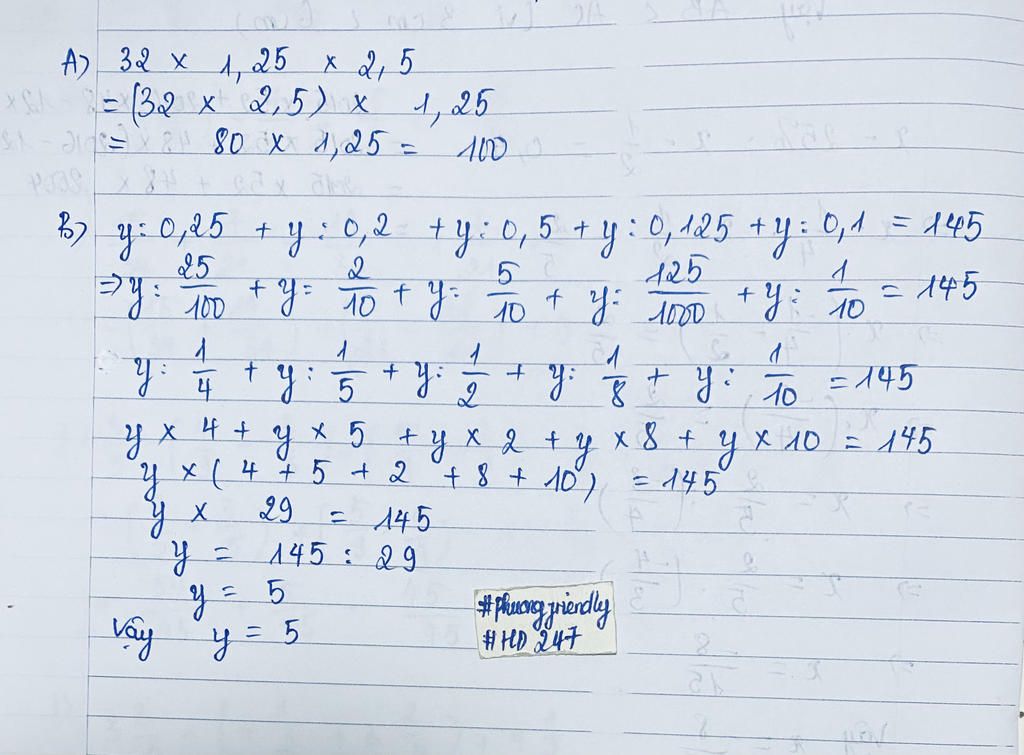 A) 32 x 1,25 x 2,5
= (32 x 2,5) x 1,25
= 80 x 1,25 = 100
B) y: 0,25 + y : 0,2 + y : 0,5 + y : 0,125 + y : 0,1 = 145
=> y: 25/100 + y= 2/10 + y: 5/10 + y: 125/1000 + y: 1/10 = 145
y: 1/4 + y: 1/5 + y: 1/2 + y: 1/8 + y: 1/10 = 145
y x 4 + y x 5 + y x 2 + y x 8 + y x 10 = 145
y x ( 4 + 5 + 2 + 8 + 10) = 145
y x 29 = 145
y = 145 : 29
y = 5
Vậy y = 5
#phuongfriendly
#HD 247